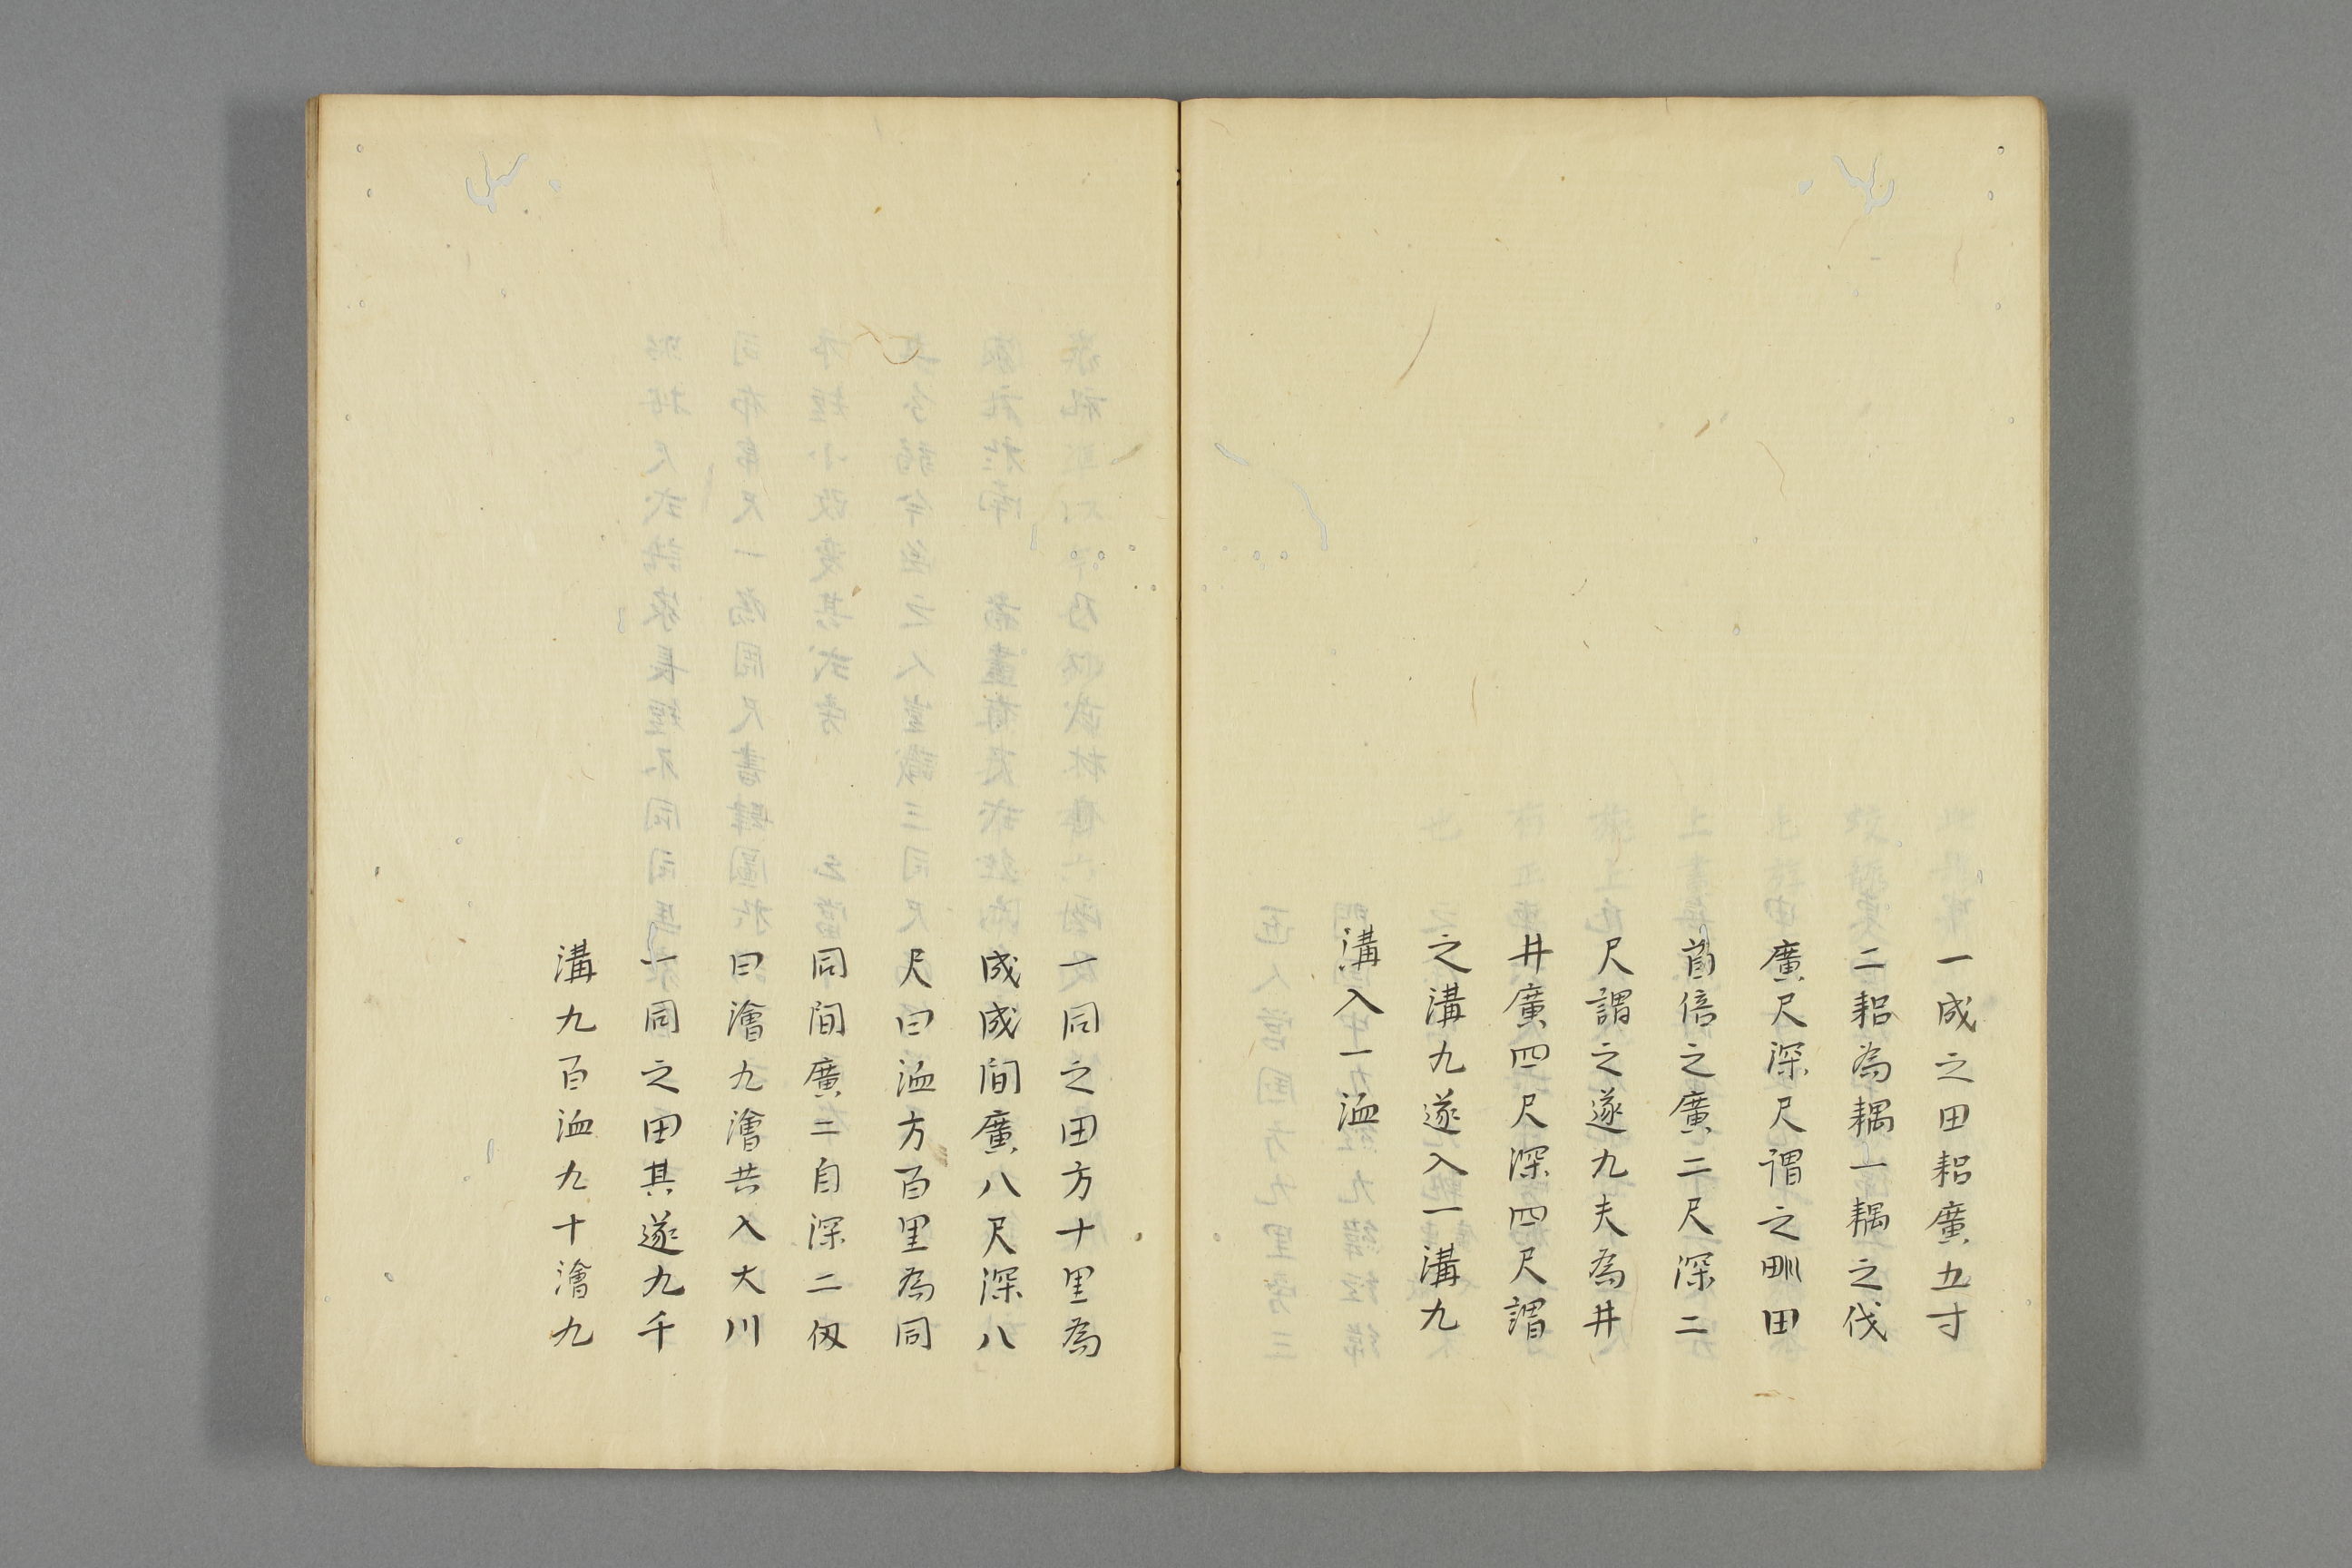 一成之田耜廣五寸
二耜為耦一耦之伐
廣尺深尺謂之㽛田
首倍之廣二尺深二
尺謂之遂九夫為井
井廣四尺深四尺謂
之溝九遂入一溝九
溝入一洫
一同之田方十里為
成成間廣八尺深八
尺曰洫方百里為同
同間廣二自深二仭
曰澮九澮共入大川
一同之田其遂九千
溝九百洫九十澮九